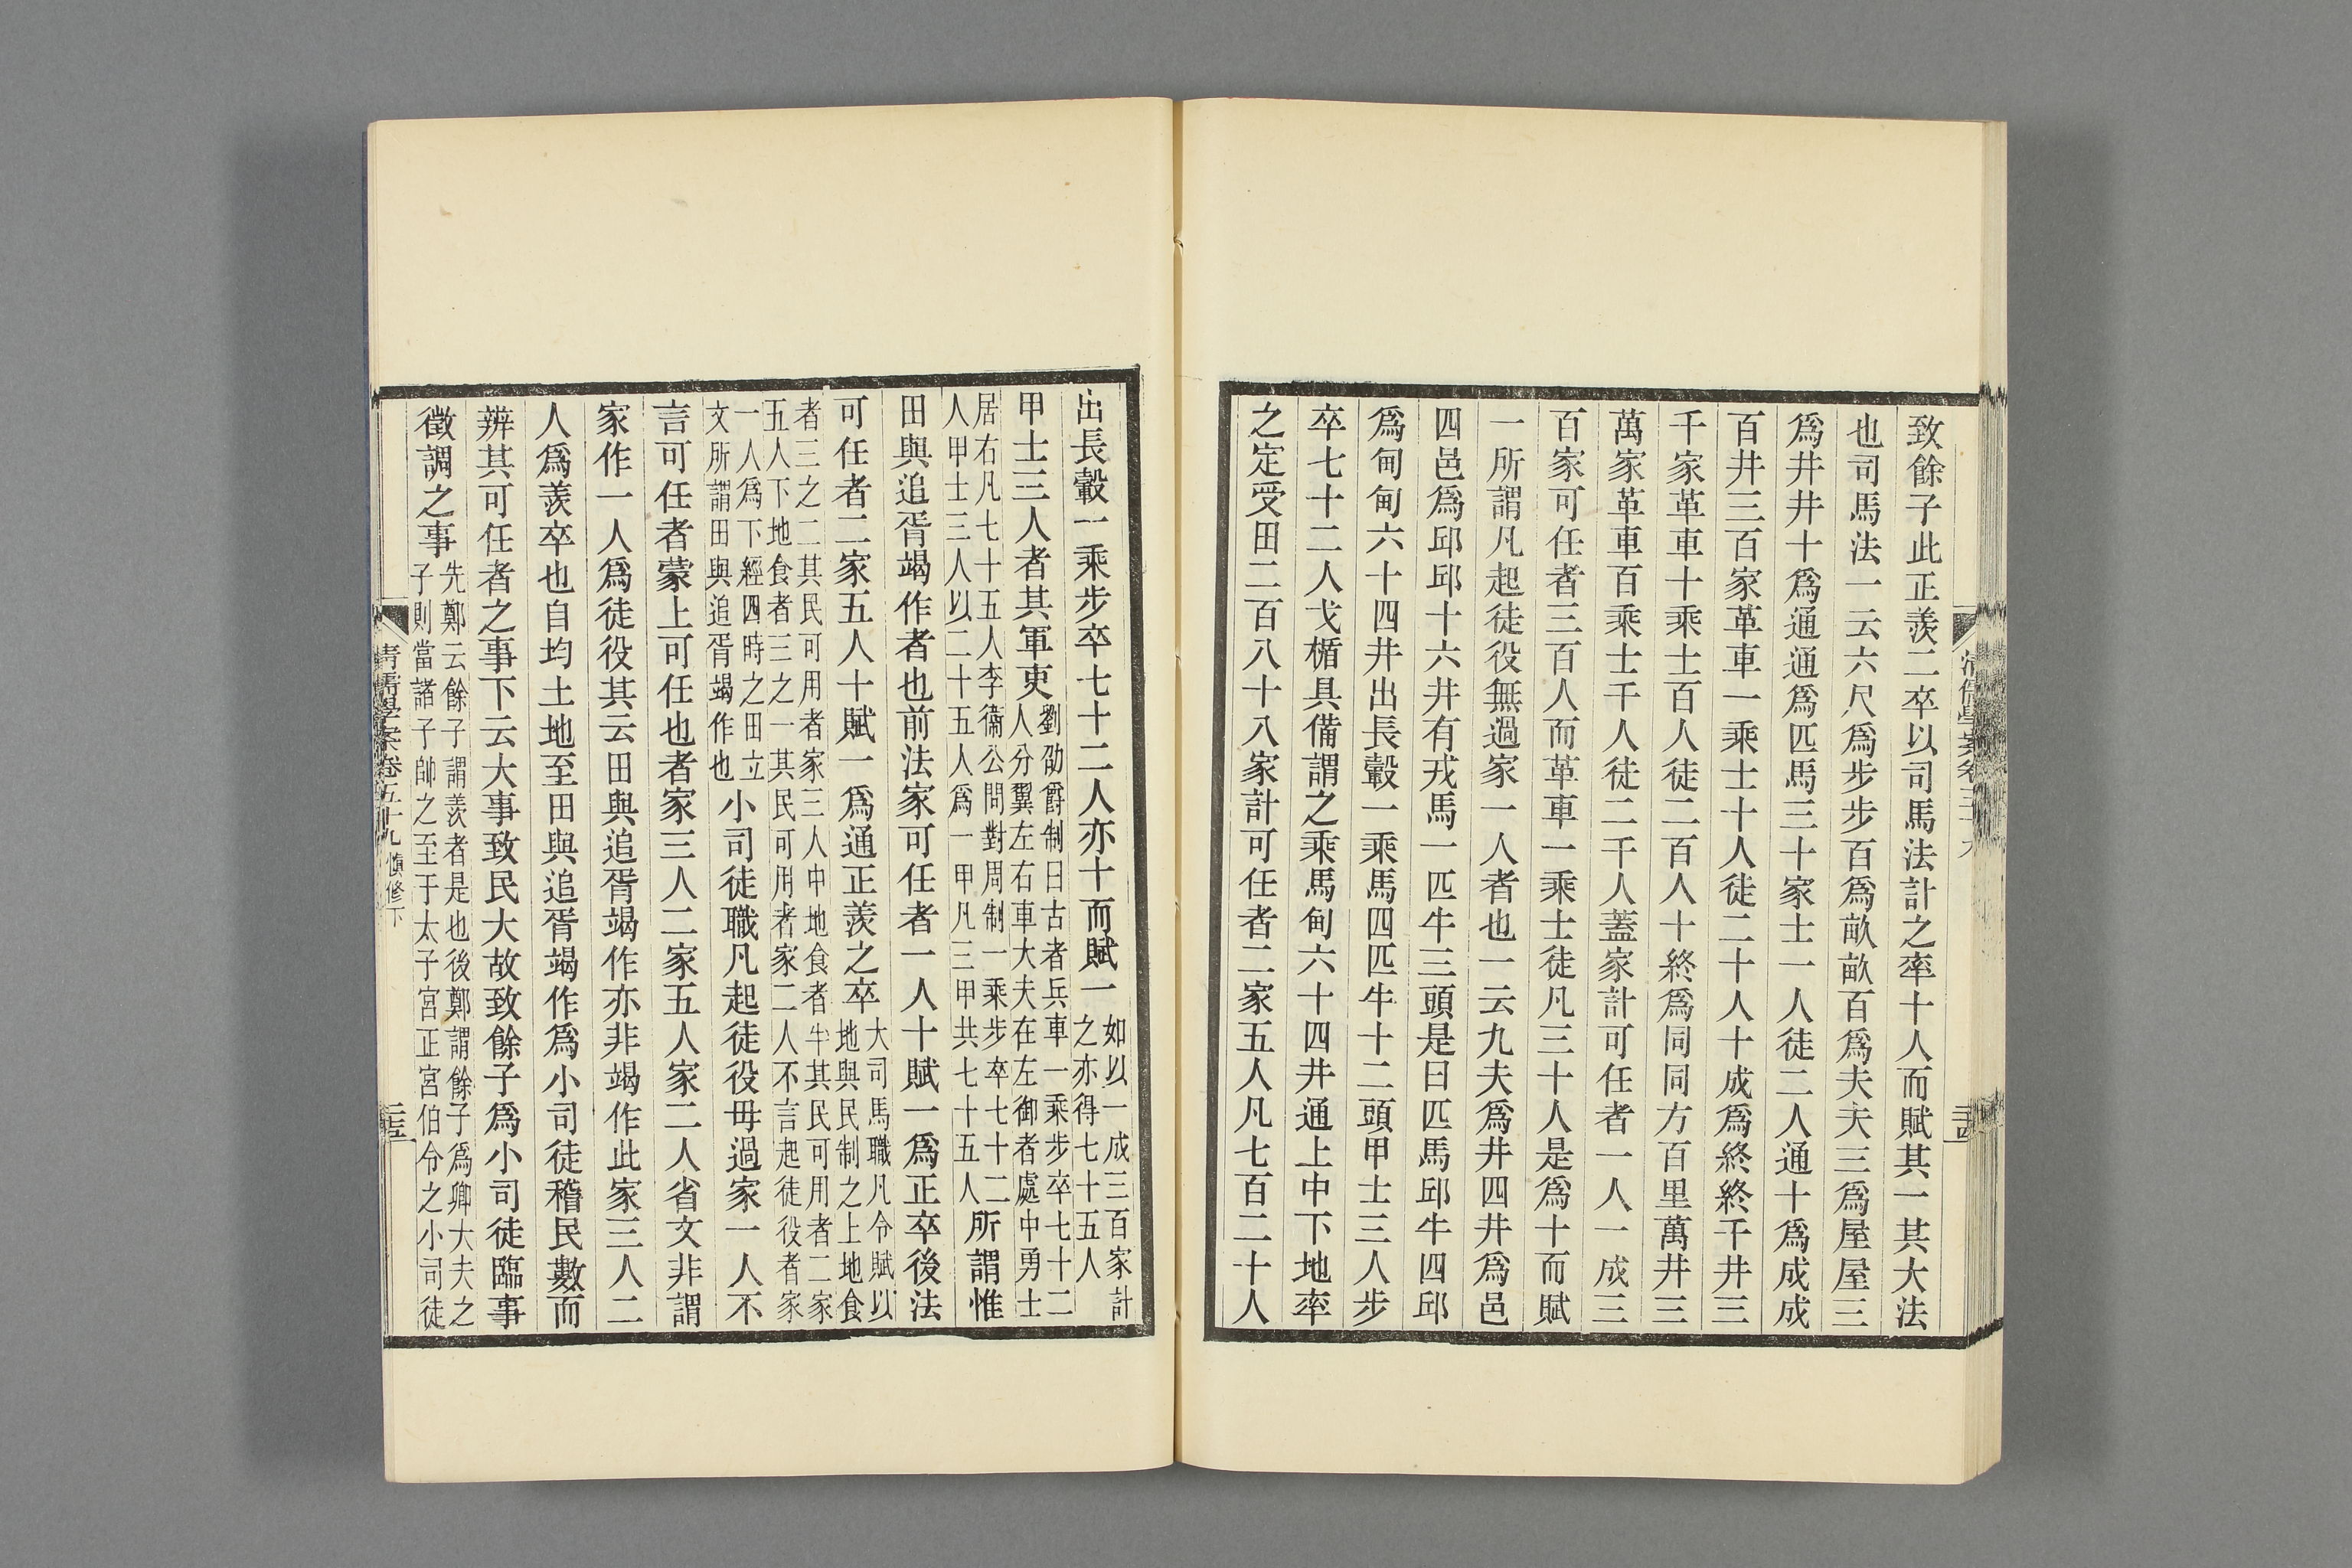 致餘子此正羨二卒以司馬法計之率十人而賦其一其大法
也司馬法一云六尺爲步步百爲畝畝百爲夫夫三爲屋屋三
爲井井十爲通通爲匹馬三十家士一人徒二人通十爲成成
百井三百家革車一乘士十人徒二十人十成爲終終千井三
千家革車十乘士百人徒二百人十終爲同同方百里萬井三
萬家革車百乘士千人徒二千人蓋家計可任者一人一成三
百家可任者三百人而革車一乘士徒凡三十人是爲十而賦
一所謂凡起徒役無過家一人者也一云九夫爲井四井爲邑
四邑爲邱邱十六井有戎馬一匹牛三頭是曰匹馬邱牛四邱
爲甸甸六十四井出長轂一乘馬四匹牛十二頭甲士三人步
卒七十二人戈楯具備謂之乘馬甸六十四井通上中下地率
之定受田二百八十八家計可任者二家五人凡七百二十人
出長轂一乘步卒七十二人亦十而賦一如以一成三百家計之亦得七十五人
甲士三人者其軍吏劉劭爵制曰古者兵車一乘步卒七十二人分翼左右車大夫在左御者處中勇士
居右凡七十五人李衞公問對周制一乘步卒七十二人甲士三人以二十五人爲一甲凡三甲共七十五人所謂惟
田與追胥竭作者也前法家可任者一人十賦一爲正卒後法
可任者二家五人十賦一爲通正羨之卒大司馬職凡令賦以地與民制之上地食
者三之二其民可用者家三人中地食者半其民可用者二家五人下地食者三之一其民可用者家二人不言起徒役者家
一人爲下經四時之田立文所謂田與追胥竭作也小司徒職凡起徒役毋過家一人不
言可任者蒙上可任也者家三人二家五人家二人省文非謂
家作一人爲徒役其云田與追胥竭作亦非竭作此家三人二
人爲羨卒也自均土地至田與追胥竭作爲小司徒稽民數而
辨其可任者之事下云大事致民大故致餘子爲小司徒臨事
徵調之事先鄭云餘子謂羨者是也後鄭謂餘子爲卿大夫之子則當諸子帥之至于太子宮正宮伯令之小司徒
清儒學案卷五十九 愼修下